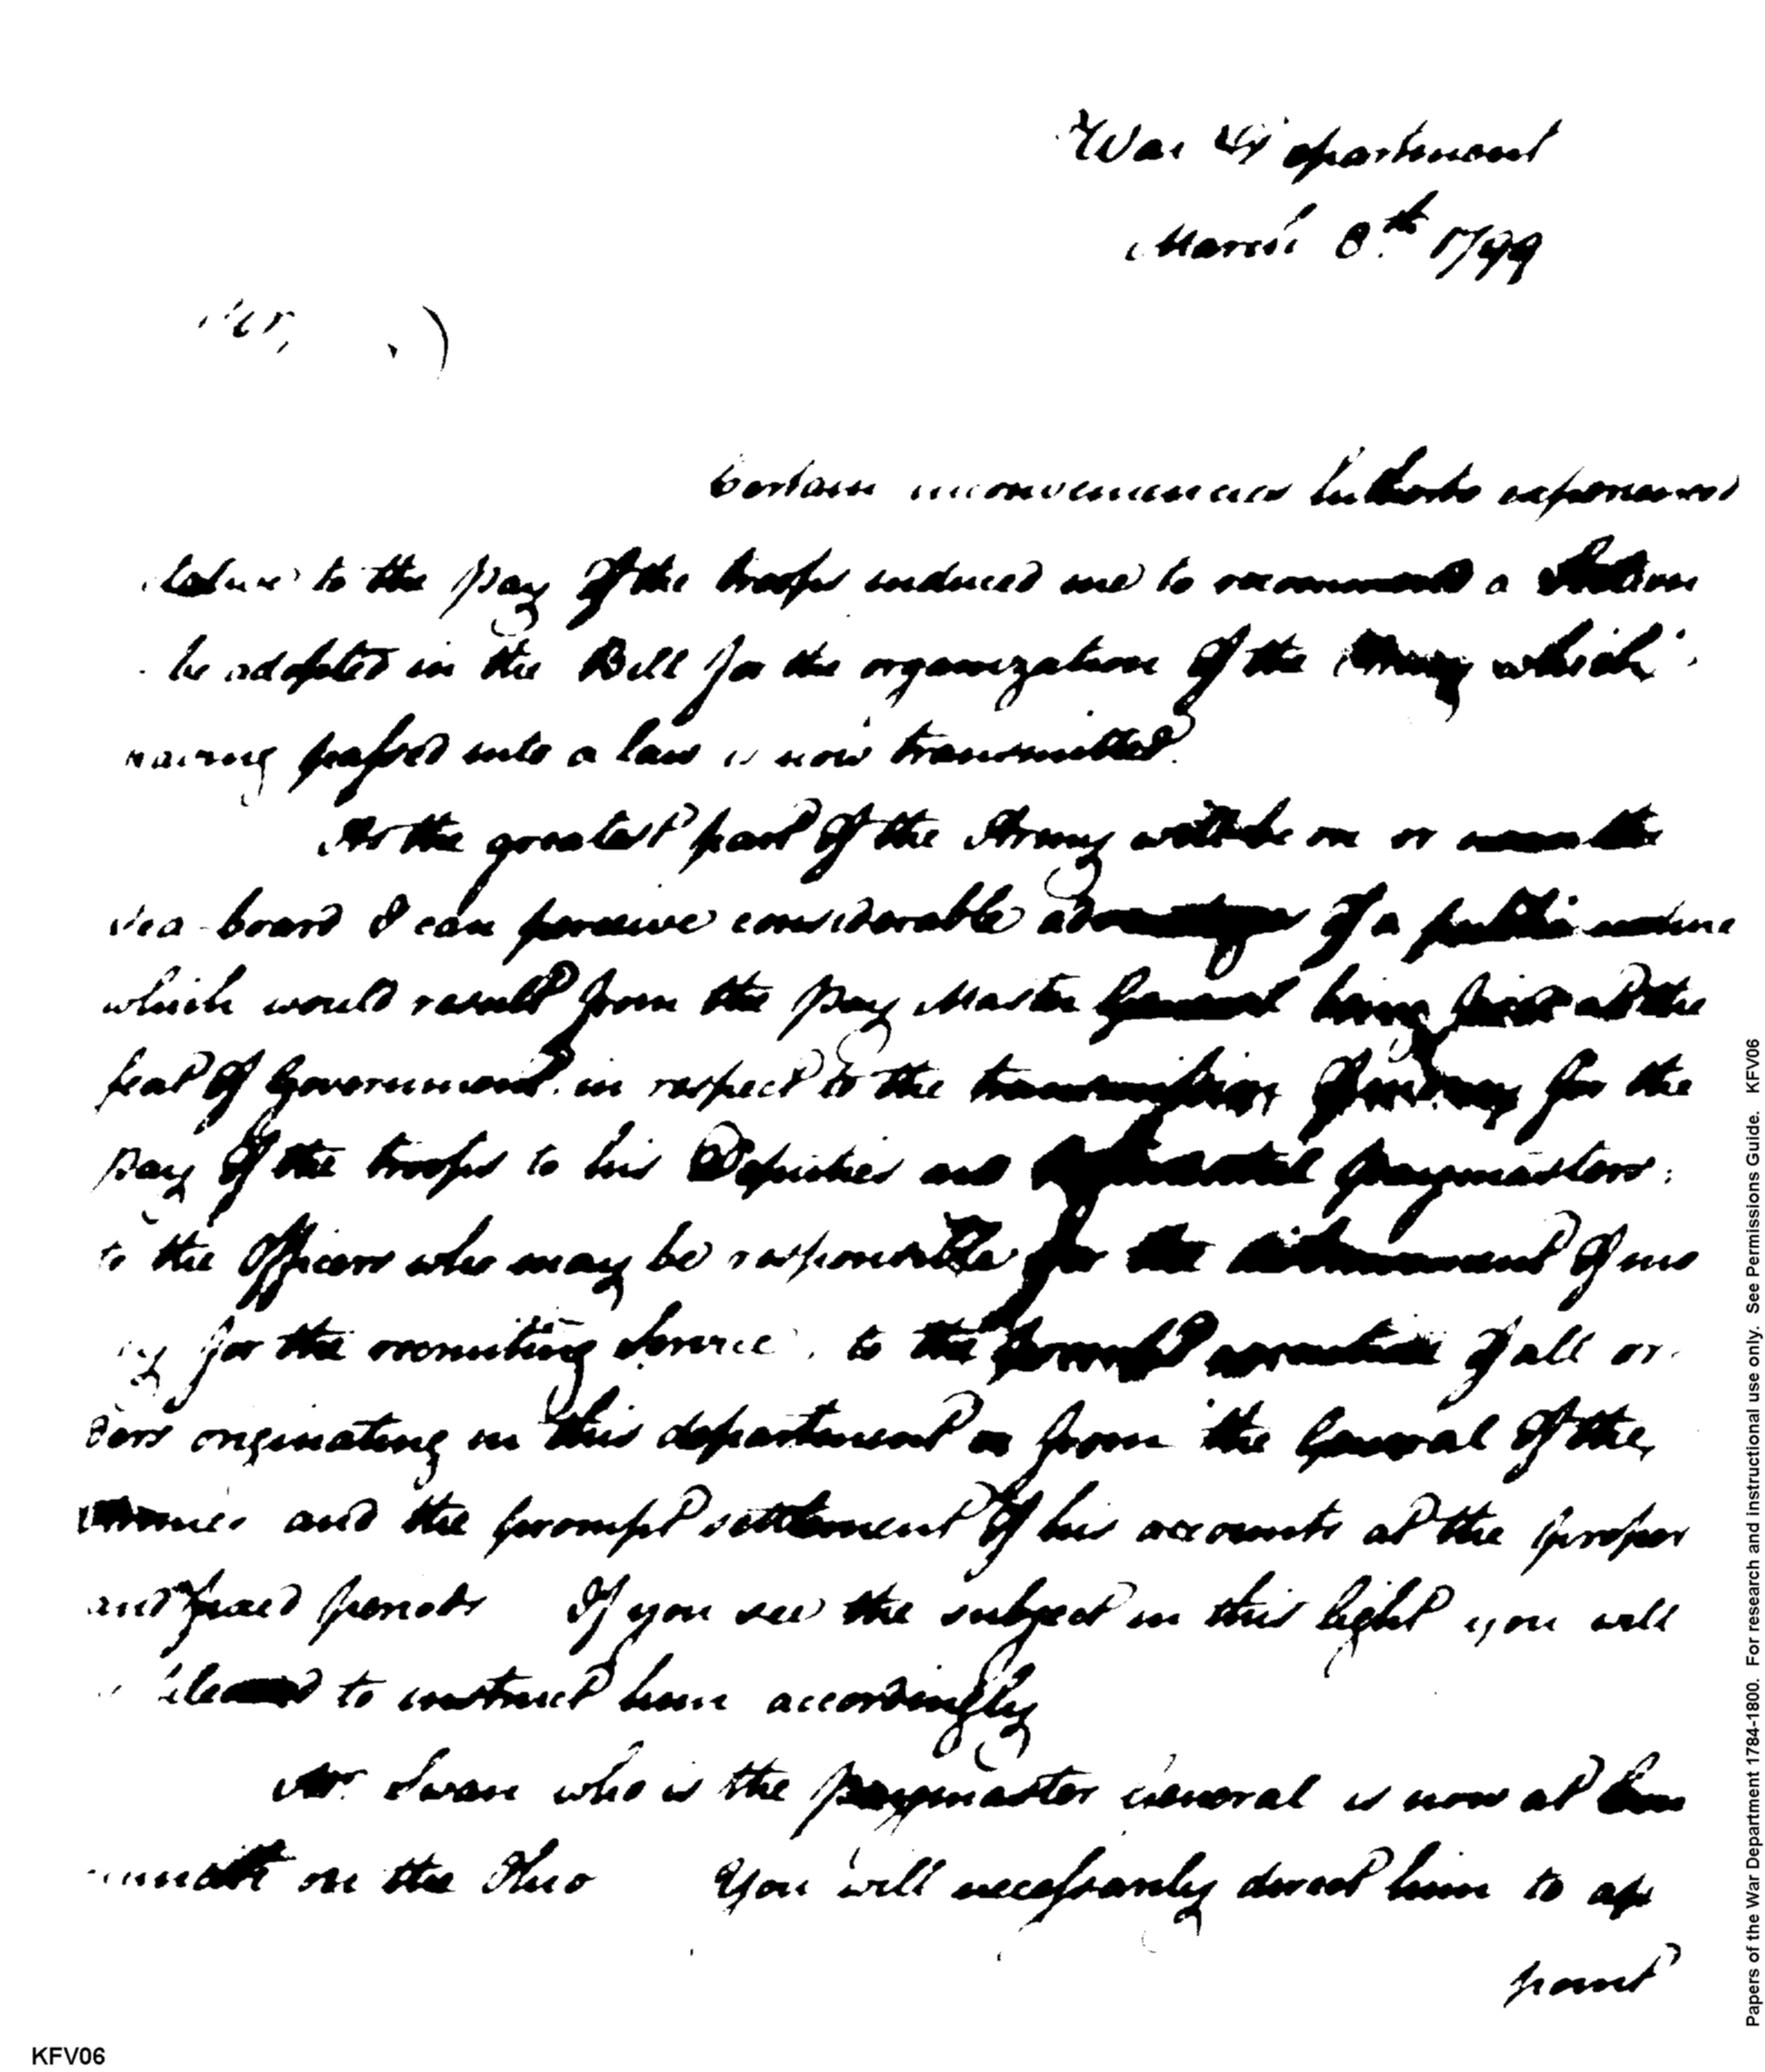 War Department
March 8.th 1799
Sir,
Certain inconveniences hitherto experienced
relative to the pay of the troops induced me to recommend a Section
be adopted in the Bill for the organization of the Army which
having passed into a law is now transmitted.
As the greatest part of the Army will be on or near the
sea-board I can perceive considerable advantages of a public nature
which would result from the pay Master General being fixed at the
seat of Government. in respect to the transmission of money for the
pay of the troops to his Deputies and regimental paymasters;
to the Officers who may be responsible for the disbursement of mo
ney for the recruiting service, to the prompt execution of all or
ders originating in this department or from the General of the
Armies and the prompt settlement of his accounts at the proper
and fixed periods If you see the subject in this light you will
pleased to instruct him accordingly
Mr. Swan who is the paymaster General is now at
on the Ohio You will necessarily direct him to ap
point
KFV06
Papers of the War Department 1784-1800. For research and instructional use only. See Permissions Guide. KFV06